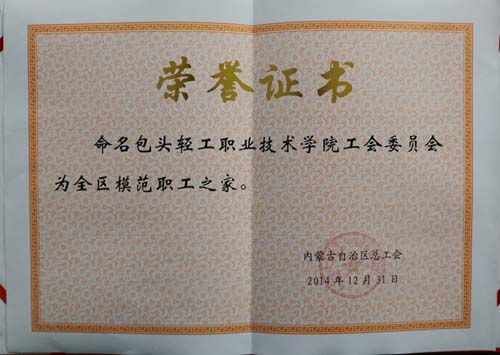 荣誉证书
命名包头轻工职业技术学院工会委员会
为全区模范职工之家。
内蒙古自治区总工会
2014年12月31日